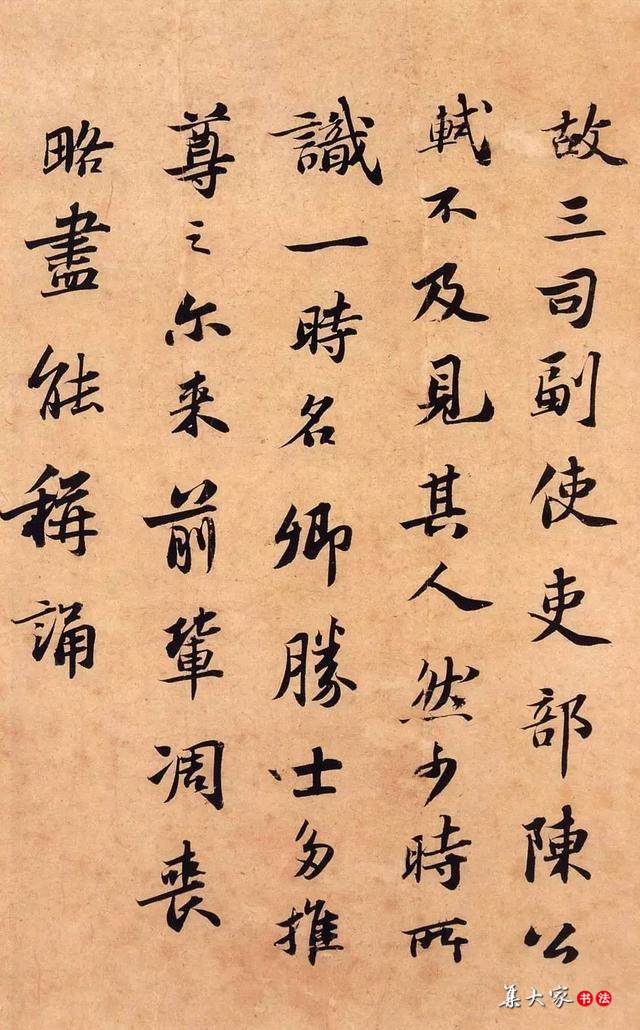 故三司副使吏部陳公
軾不及見其人然少時所
識一時名卿勝士多推
尊之尓来前輩凋喪
略盡能稱誦
集大家书法